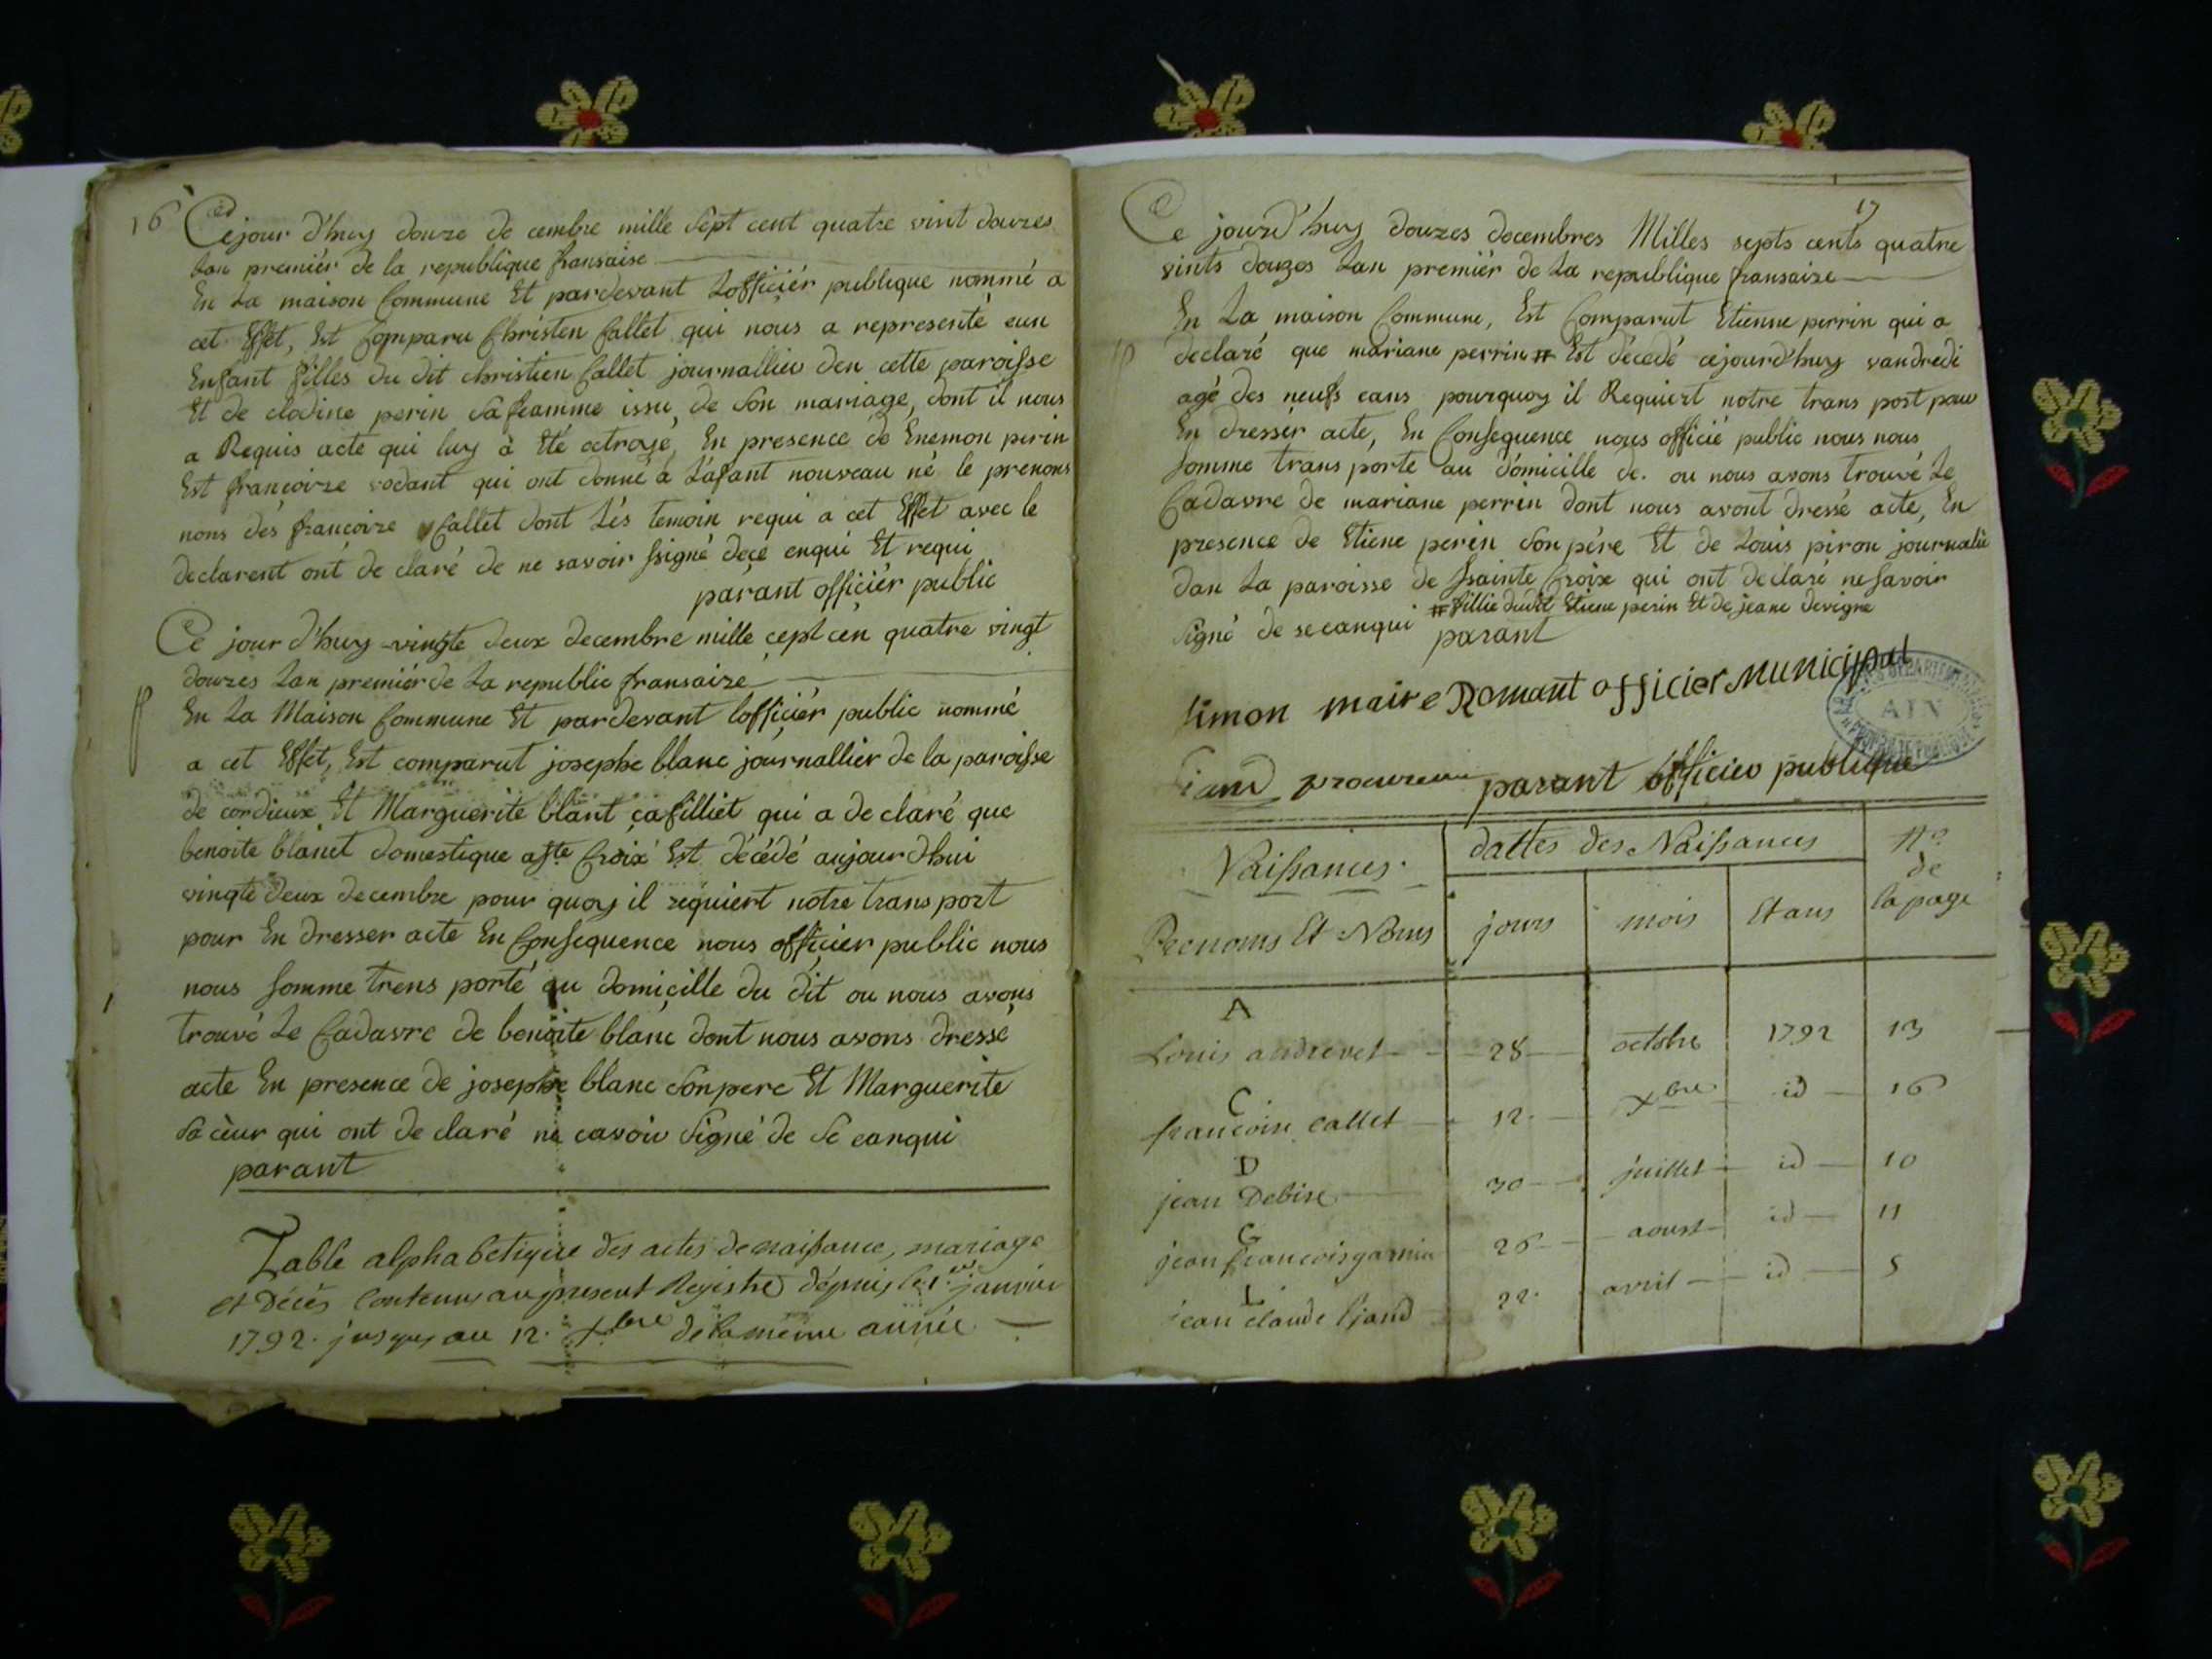 16
Cejour d'huy douze de cembre mille sept cent quatre vint douzes
Lan premiér de la republique fransaise
En La maison Commune Et pardevant Lofficiér publique nommé a
cet Effet, Est Comparu Christen Callet qui nous a representé eun
Enfant filles du dit christien Callet journallier den cette paroisse
Et de clodine perin Safeamme issu de Son mariage, dont il nous
a Requis acte qui luy à Eté octroyé, En presence de Enemon perin
Est francoize vodant qui ont donné a Lafant nouveau né le prenons
nons des francoize Callet dont Lés temoin requi a cet Effet avec le
declarent ont de claré de ne savoir ssigné dece enqui Et requi
parant officiér public
Ce jour d'huy vingte deux decembre mille cept cen quatre vingt
douzes Lan premiér de La republic fransaize
En La Maison Commune Et pardevant lofficiér public nommé
a cet Effet, Est comparut josephe blanc journallier de la paroisse
de cordieux Et Marguerite blant cafilliet qui a de claré que
benoite blanct domestique aste Croix Est décédé aujourdhui
vingte deux decembre pour quoy il requiert notre trans port
pour En dresser acte En Consequence nous officier public nous
nous somme trens porté au domicille du dit ou nous avons
trouvé Le Cadavre de benoite blanc dont nous avons dressé
acte En presence de josephe blanc Sonpere Et Marguerite
Sa cèur qui ont de claré ne cavoir Signé de Se eanqui
parant
Table alphabetique des actes de naissance, mariage
et Décès Contenus au present Registre depuis le 1.er janvier
1792. jusques au 12. Xbre de la même année
17
Ce jourd'huy douzes decembres Milles septs cents quatre
vints douzes Lan premiér de La republique fransaize
En La maison Commune, Est Comparut Etienne perrin qui a
declaré que mariane perrin # Est décedé cejourd'huy vandredi
agé des neufs eans pourquoy il Requiert notre trans post pour
En dressér acte, En Consequence nous officié public nous nous
somme trans porte au domicille de. ou nous avons trouvé Le
Cadavre de mariane perrin dont nous avont dressé acte, En
presence de Etiene perin Son pére Et de Louis piron journalié
dan La paroisse de ssainte Croix qui ont declaré ne savoir
Signé de se eanqui # fillie dudit Etiene perin Et de jeane devigne
parant
Simon maire Romant officier Municipal
procureur parant officier publique
AIN
Naissances. dattes des Naissances N.o de la page
Prenoms Et Noms jours mois Et ans
A
Louis andrevet 28 octobre 1792 13
C
francoise Callet 12 Xbre id 16
D
jean Debise 30 juillet id 10
G
jean francois garnier 26 aoust id 11
L
jean claude liand 22 avril id 5